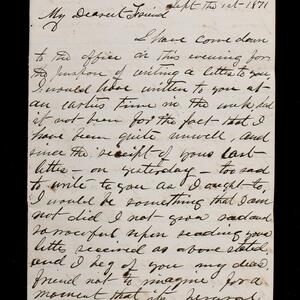 Sept the 1st - 1871
My Dearest Friend
I have come down
to the office in this evening for
the purpose of writing a letter to you,
I would have written to you at
an earlier time in the week did
it not been for the fact that I
have been quite unwell, and
since the receipt of yours last
letter - on yesterday - too sad
to write to you as I ought to,
I would be something that I am
not did I not grow sad and
sorrowful upon reading your
letter received as above stated,
and I beg of you my dear
friend not to imagine for a
moment that